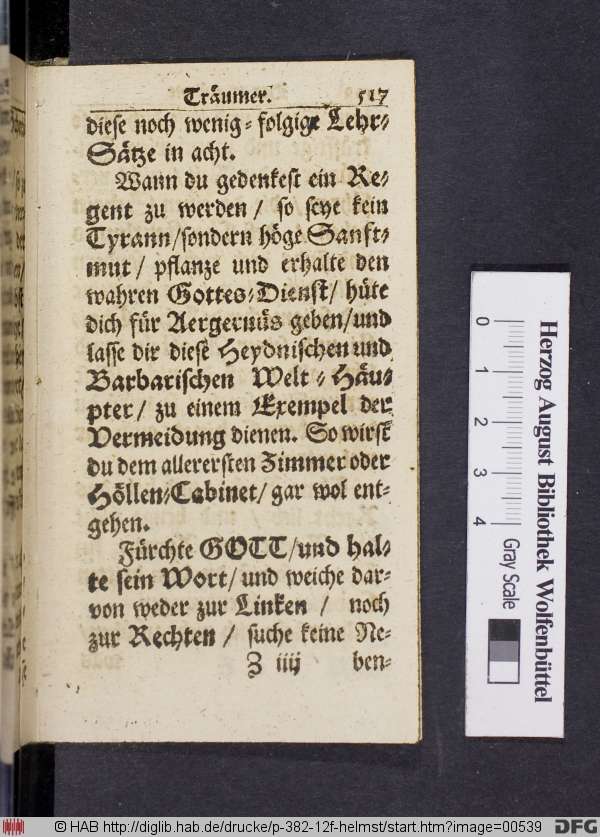 Träumer. 517
diese noch wenig-folgige Lehr-
Sätze in acht.
Wann du gedenkest ein Re-
gent zu werden / so seye kein
Tyrann/sondern höge Sanft-
mut / pflanze und erhalte den
wahren Gottes-Dienst/ hüte
dich für Aergernüs geben/und
lasse dir diese Heydnischen und
Barbarischen Welt-Häu-
pter/ zu einem Exempel der
Vermeidung dienen. So wirst
du dem allerersten Zimmer oder
Höllen-Cabinet/ gar wol ent-
gehen.
Fürchte GOTT/und hal-
te sein Wort/ und weiche dar-
von weder zur Linken / noch
zur Rechten / suche keine Ne-
Z iiij ben-
Herzog August Bibliothek Wolfenbüttel
0 1 2 3 4
Gray Scale
© HAB http://diglib.hab.de/drucke/p-382-12f-helmst/start.htm?image=00539
DFG